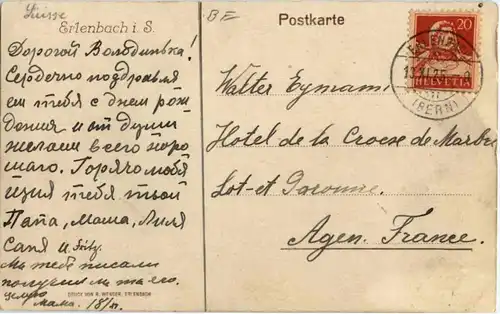 Suisse
Erlenbach i. S.
BE
Postkarte
Дорогой Володинька!
Сердечно поздравля
ем тебя с днем рож
дения и от души
желаем всего хоро
шаго. Горячо любя
щия тебя твои
Папа, Мама, Лиля
Саня и Fritz.
Мы тебе писали
получил ли ты его.
целую
Мама. 18/XI.
DRUCK VON R. WENGER, ERLENBACH
20
HELVETIA
ERLENBACH
(BERN)
Walter Eymann
Hotel de la Croese de Marbre
Lot-et Garonne.
Agen. France.